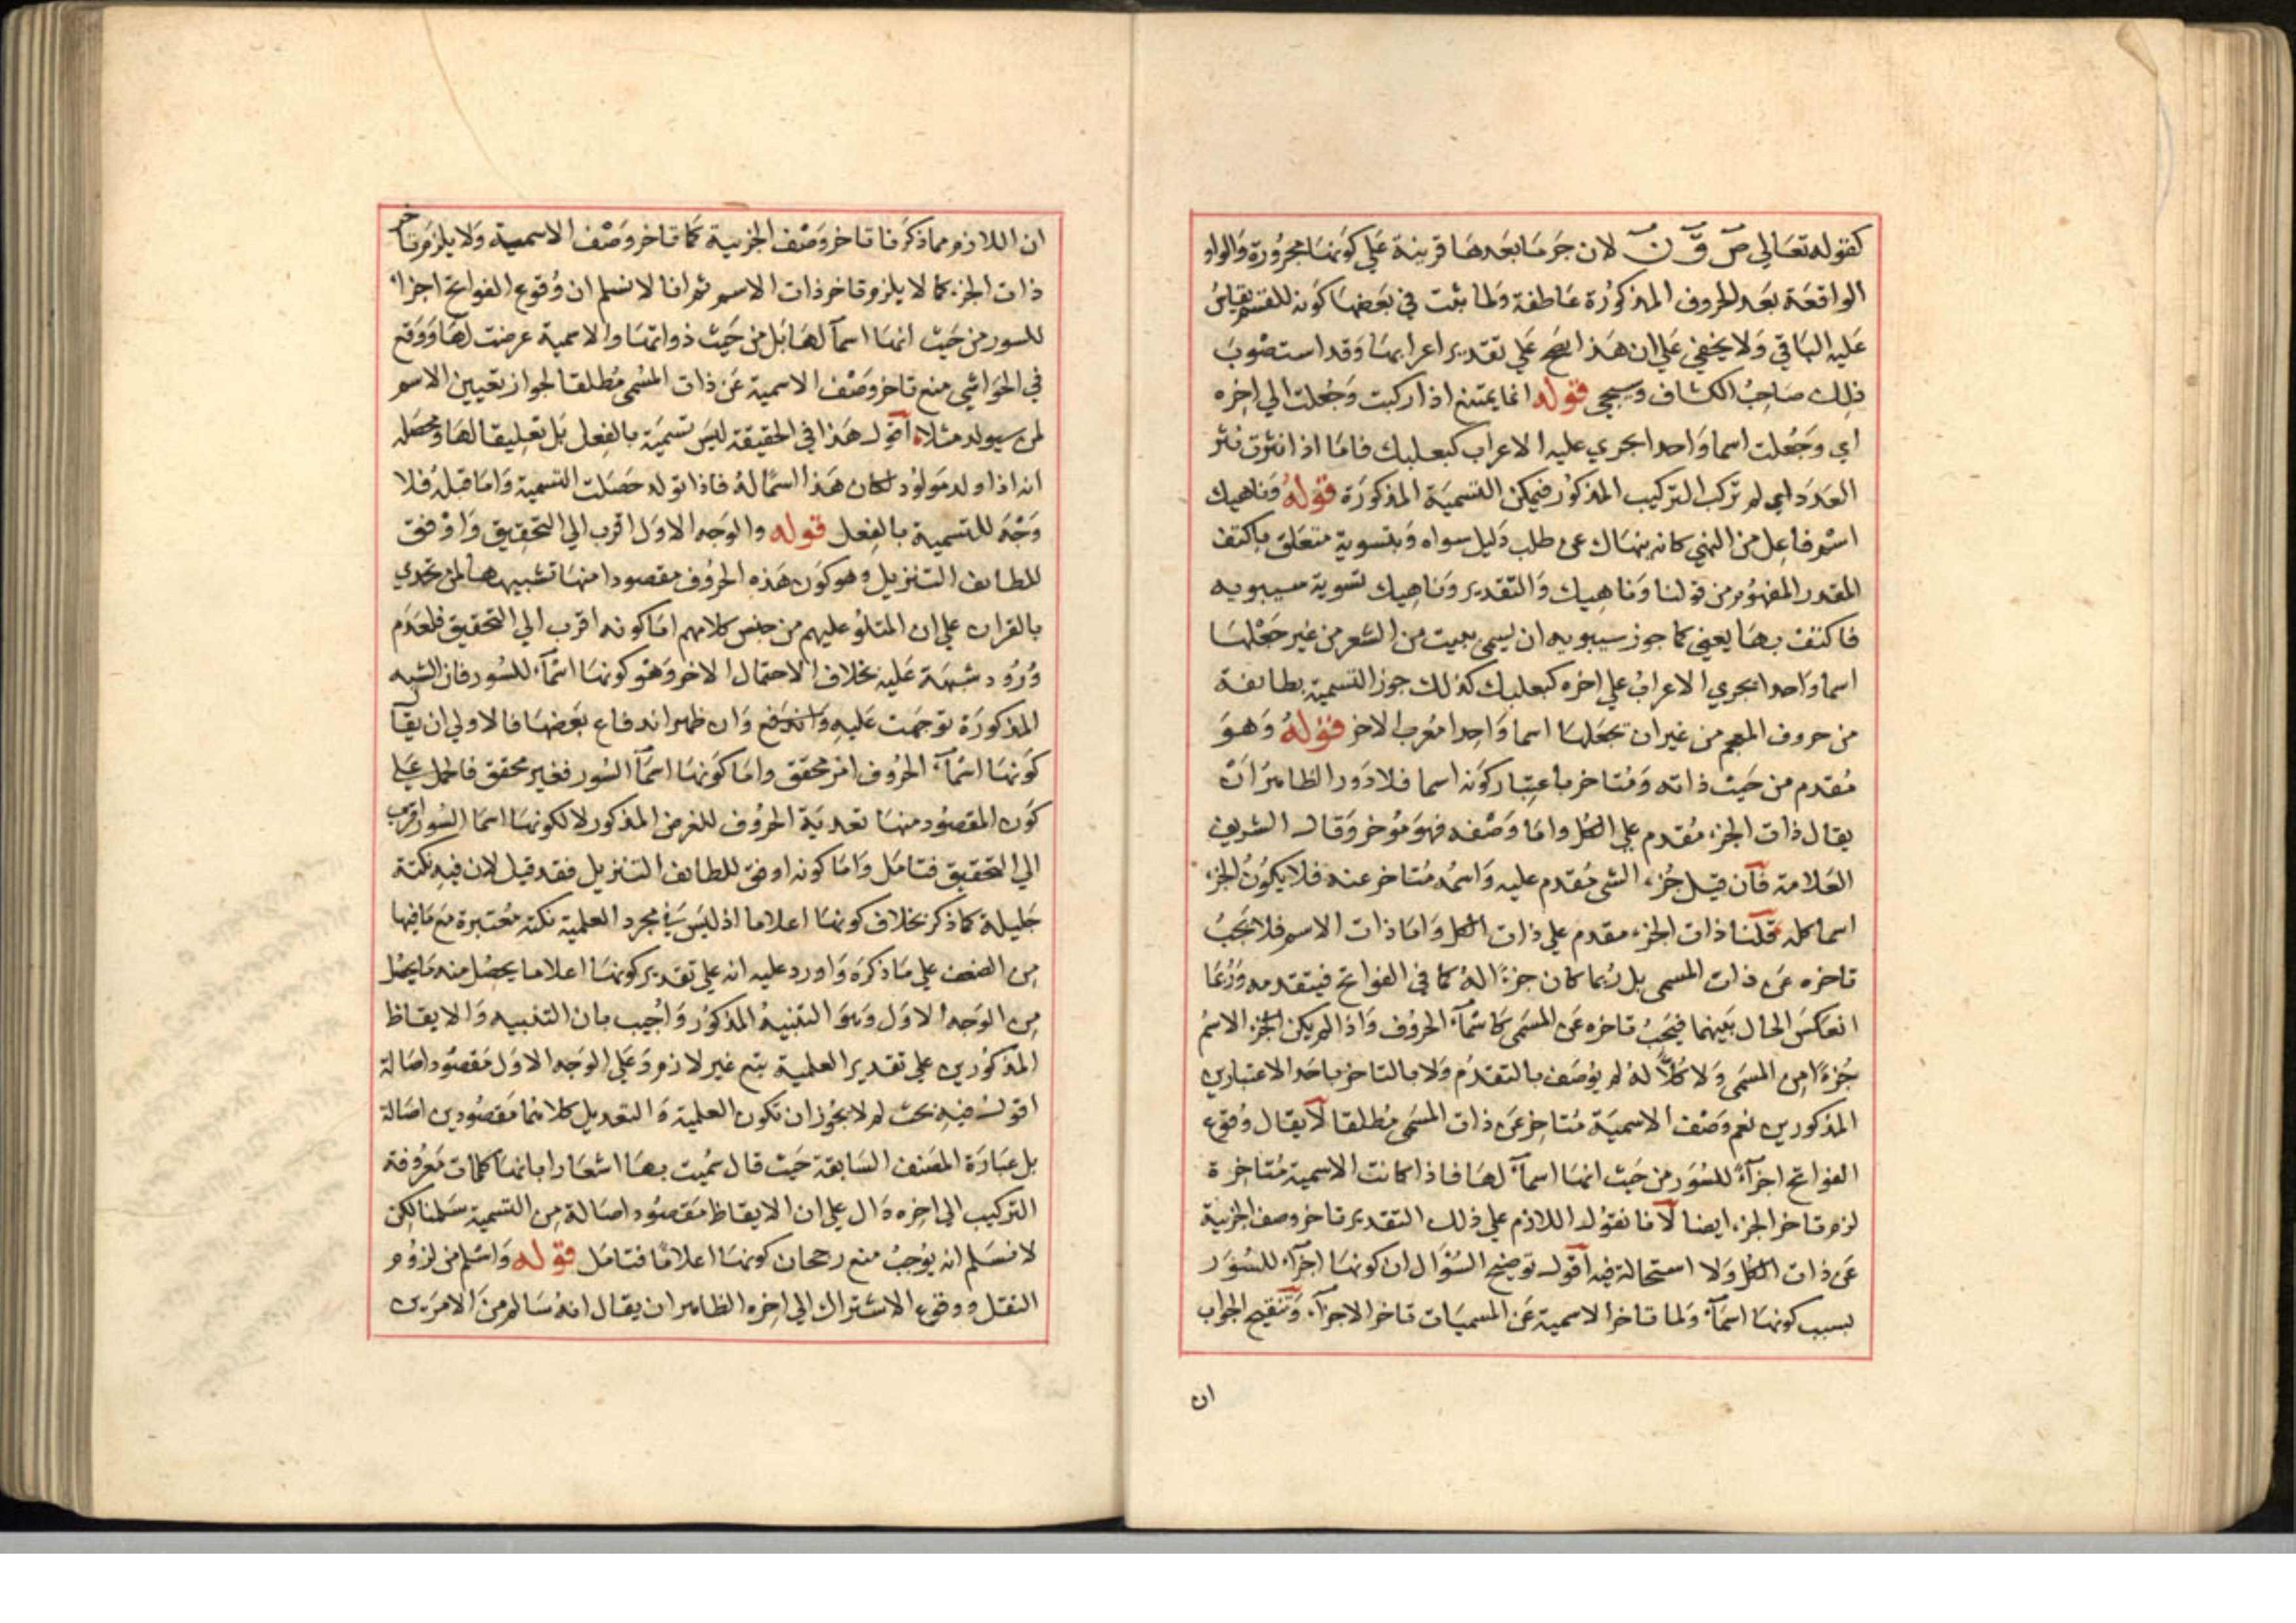 كقوله تعالي ص ق ن لان جر ما بعدها قرينة علي كونها مجرورة والواو
الواقعة بعد الحروف المذكورة عاطفة ولما ثبت في بعضها كونه للقسم يقاس
عليه الباقي ولا يخفي علي ان هذا يصح علي تقدير اعرابها وقد استصوب
ذلك صاحب الكشاف وسيجي قوله انما يمتنع اذا ركبت وجعلت الي اخره
اي وجعلت اسما واحدا يجري عليه الاعراب كبعلبك فاما اذا نثرت نثر
العدد اي لم تركب التركيب المذكور فيمكن التسمية المذكورة قوله وناهيك
اسم فاعل من النهي كانه ينهاك عن طلب دليل سواه وبتسوية متعلق باكتف
المقدر المفهوم من قولنا وناهيك والتقدير وناهيك تسوية سيبويه
فاكتف بها يعني كما جوز سيبويه ان يسمي ببيت من الشعر من غير جعلها
اسما واحدا يجري الاعراب علي اخره كبعلبك كذلك جوز التسمية بطائفة
من حروف المعجم من غير ان تجعلها اسما واحدا معرب الاخر قوله وهو
مقدم من حيث ذاته ومتاخر باعتبار كونه اسما فلا دور الظاهر ان
يقال ذات الجزء مقدم علي الكل واما وصفه فهو مؤخر وقال الشريف
العلامة فان قيل جزء الشي مقدم عليه واسمه متاخر عنه فلا يكون الجزء
اسما كله قلنا ذات الجزء مقدم علي ذات الكل واما ذات الاسم فلا يجب
تاخره عن ذات المسمي بل ربما كان جزءا له كما في الفواتح فيتقدمه وربما
انعكس الحال بينهما فيجب تاخره عن المسمي كاسماء الحروف واذا لم يكن الجزء الاسم
جزءا من المسمي ولا كلا له لم يوصف بالتقدم ولا بالتاخر باحد الاعتبارين
المذكورين نعم وصف الاسمية متاخر عن ذات المسمي مطلقا لا يقال وقوع
الفواتح اجزاء للسور من حيث انها اسماء لها فاذا كانت الاسمية متاخرة
لزم تاخر الجزء ايضا لانا نقول اللازم علي ذلك التقدير تاخر وصف الجزئية
عن ذات الكل ولا استحالة فيه اقول توضيح السؤال ان كونها اجزاء للسور
بسبب كونها اسماء ولما تاخر الاسمية عن المسميات تاخر الاجزاء وتنقيح الجواب
ان
ان اللازم مما ذكرنا تاخر وصف الجزئية كما تاخر وصف الاسمية ولا يلزم تاخر
ذات الجزء كما لا يلزم تاخر ذات الاسم ثم انا لا نسلم ان وقوع الفواتح اجزاء
للسور من حيث انها اسما لها بل من حيث ذواتها والاسمية عرضت لها ووقع
في الحواشي منع تاخر وصف الاسمية عن ذات المسمي مطلقا لجواز تعيين الاسم
لمن سيولد مثلا اقول هذا في الحقيقة ليس تسمية بالفعل بل تعليقا لها ومحصله
انه اذا ولد مولود لكان هذا اسما له فاذا تولد حصلت التسمية واما قبله فلا
وجه للتسمية بالفعل قوله والوجه الاول اقرب الي التحقيق واوفق
للطائف التنزيل وهو كون هذه الحروف مقصودا منها تنبيها لمن تحدي
بالقران علي ان المتلو عليهم من جنس كلامهم اما كونه اقرب الي التحقيق فلعدم
ورود شبهة عليه بخلاف الاحتمال الاخر وهو كونها اسماء للسور فان الشبه
المذكورة توجهت عليه واندفع وان ظهر اندفاع بعضها فالاولي ان يقال
كونها اسماء الحروف امر محقق واما كونها اسما السور فغير محقق فالحمل علي
كون المقصود منها تعدية الحروف للغرض المذكور لا لكونها اسما السور اقرب
الي التحقيق فتامل واما كونه اوفق للطائف التنزيل فقد قيل لان فيه نكتة
جليلة كما ذكر بخلاف كونها اعلاما اذ ليس في مجرد العلمية نكتة معتبرة مع ما فيها
من الضعف علي ما ذكره واورد عليه انه علي تقدير كونها اعلاما يحصل منه ما يحصل
من الوجه الاول وهو التنبيه المذكور واجيب بان التنبيه والايقاظ
المذكورين علي تقدير العلمية بتبع غير لازم وعلي الوجه الاول مقصود اصالة
اقول فيه بحث لم لا يجوز ان تكون العلمية والتعديل كلاهما مقصودين اصالة
بل عبارة المصنف السابقة حيث قال سميت بها اشعارا بانها كلمات معروفة
التركيب الي اخره دال علي ان الايقاظ مقصود اصالة من التسمية سلمنا لكن
لا نسلم انه يوجب منع رجحان كونها اعلاما فتامل قوله واسلم من لزوم
النقل ووقوع الاشتراك الي اخره الظاهر ان يقال انه سالم من الامرين